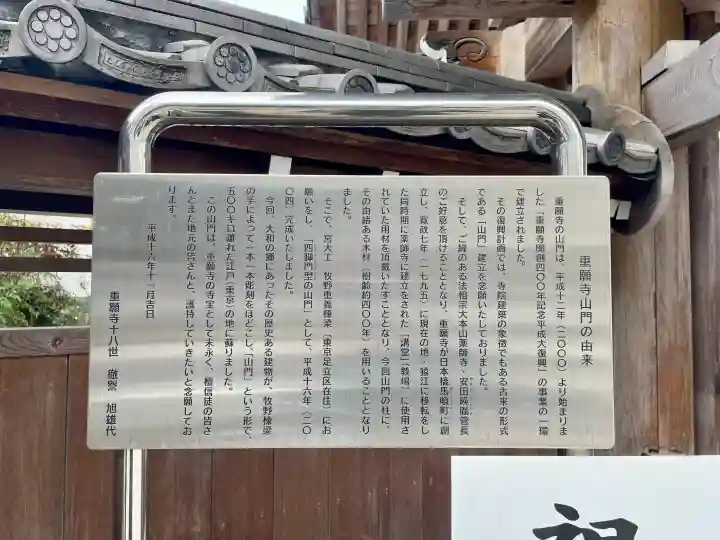 重願寺山門の由来
重願寺の山門は、平成十二年(二〇〇〇)より始まりま
した「重願寺開創四〇〇年記念平成大復興」の事業の一環
で建立されました。
その復興計画では、寺院建築の象徴でもある古来の形式
である「山門」建立を念願いたしておりました。
そして、ご縁のある法相宗大本山薬師寺・安田暎胤管長
のご好意を頂けることとなり、重願寺が日本橋馬喰町に創
立し、寛政七年(一七九五)に現在の地・猿江に移転をし
た同時期に薬師寺に建立をされた「講堂」(教場)に使用さ
れていた用材を頂戴いたすこととなり、今回山門の柱に、
その由緒ある木材(樹齢約四〇〇年)を用いることとなり
ました。
そこで、宮大工 牧野重義棟梁(東京足立区在住)にお
願いをし、「四脚門型の山門」として、平成十六年(二〇
〇四)完成いたしました。
今回、大和の郷にあったその歴史ある建物が、牧野棟梁
の手によって一本一本彫刻をほどこし、「山門」という形で、
五〇〇キロ離れた江戸(東京)の地に蘇りました。
この山門は、重願寺の寺宝として末永く、檀信徒の皆さ
んとまた地元の皆さんと、護持していきたいと念願してお
ります。
平成十六年十一月吉日
重願寺十八世 徹誉 旭雄代
祝